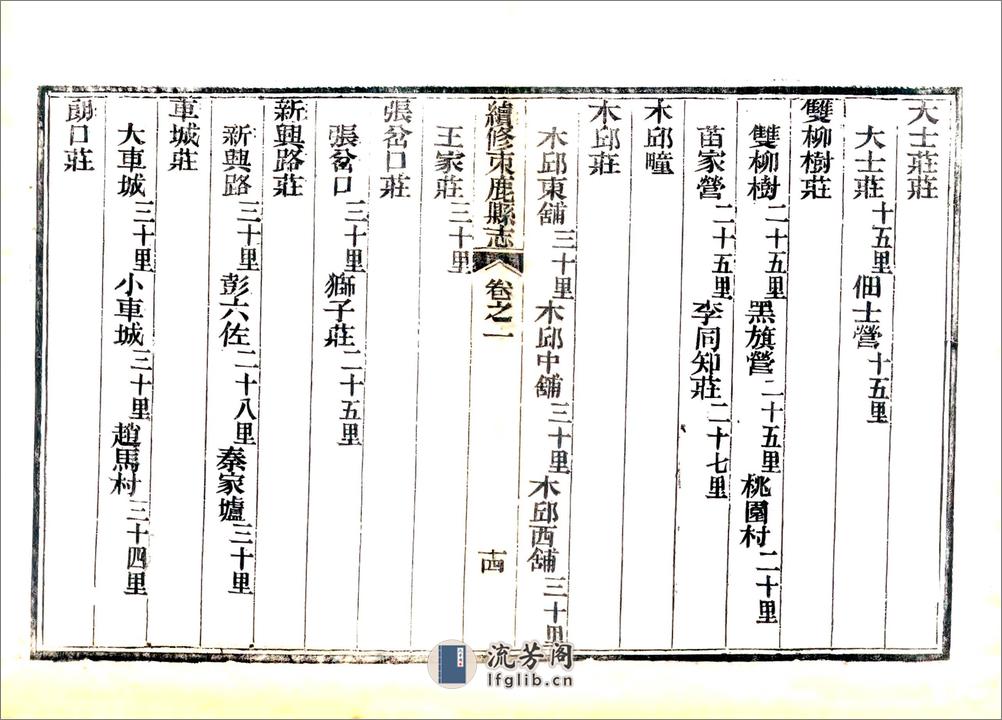 大士莊莊
大士莊十五里佃士營十五里
雙柳樹莊
雙柳樹二十五里黑旗營二十五里桃園村二十里
苗家營二十五里李同知莊二十七里
木邱疃
木邱莊
木邱東舖三十里木邱中舖三十里木邱西舖三十里
續修束鹿縣志 卷之一 十四
王家莊三十里
張岔口莊
張岔口三十里獅子莊二十五里
新興路莊
新興路三十里彭六佐二十八里秦家壚三十里
車城莊
大車城三十里小車城三十里趙馬村三十四里
郎口莊
流芳阁
lfglib.cn